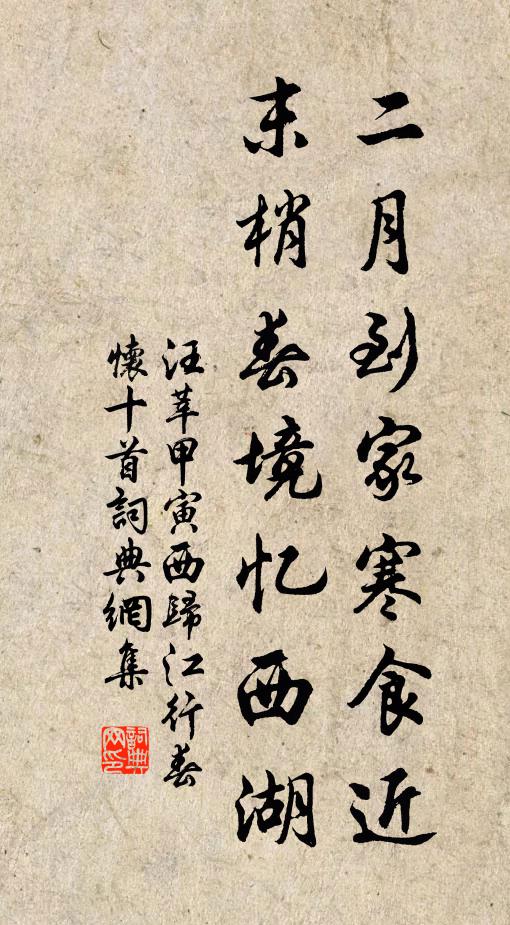 二月到家寒食近
末梢春境忆西湖
汪莘甲寅西歸江行春
懷十首詞典網集
詞典网印